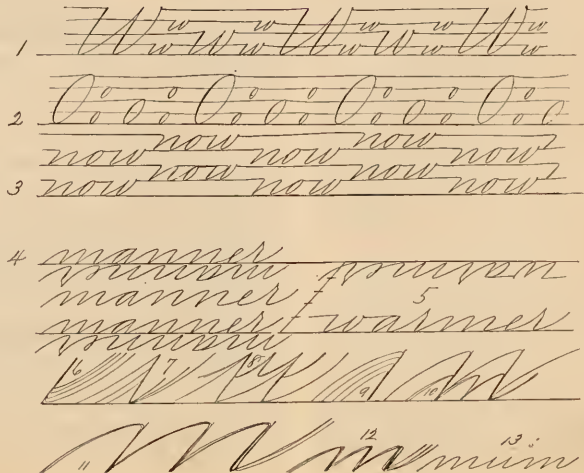 1 W w w W w w W w w W w w W w w
2 O o o O o o O o o O o o O o o O o o O o o O
now now
now now now
now now
3 now now now
4 manner
manner 5
manner warmer
6 7 8 9 10
11 12 13